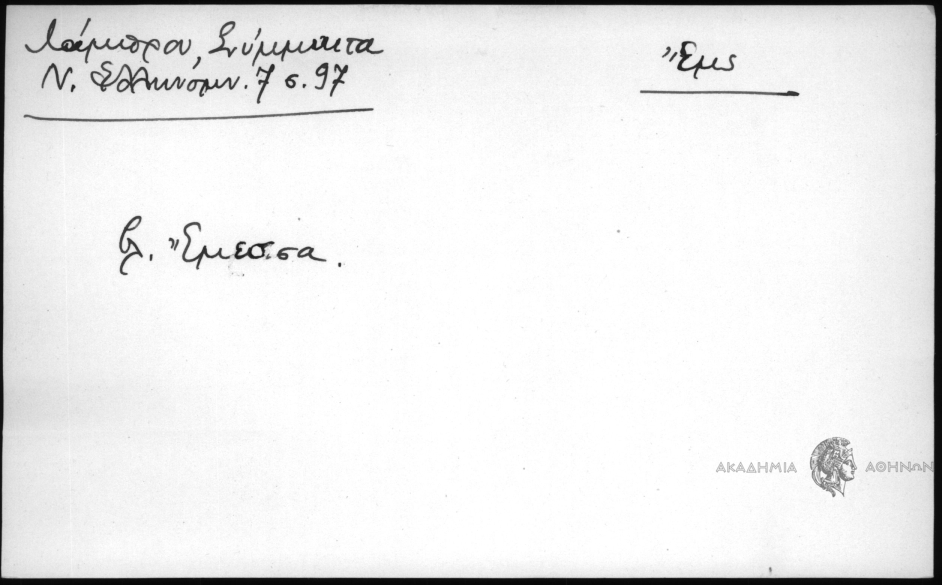 Λάμπρου, Σύμμικτα
Ν. Ελληνομν. 7 σ. 97
Ἔμς
βλ. Ἔμεσσα.
ΑΚΑΔΗΜΙΑ ΑΘΗΝΩΝ